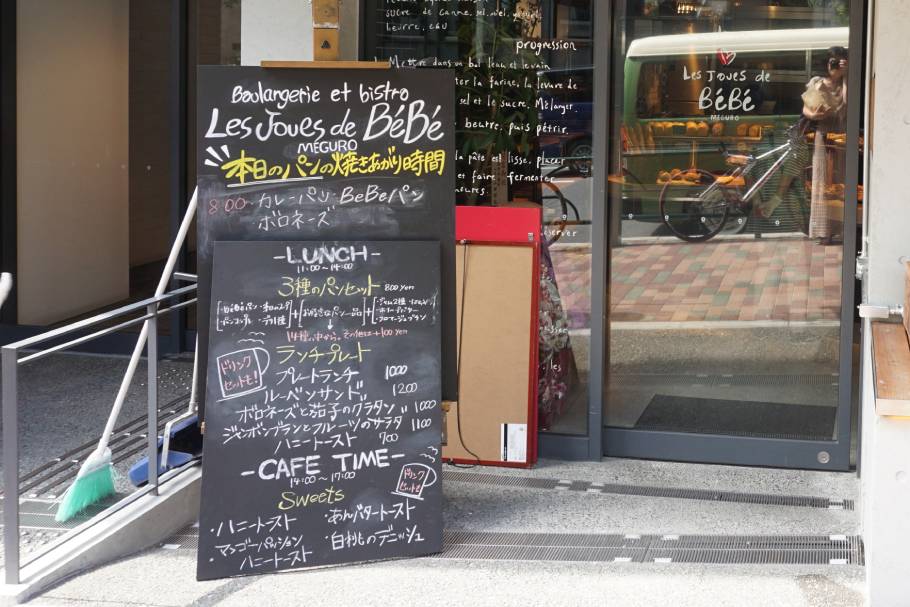 sucre de canne, sel, miel, yaourt
beurre, eau
progression
la farine, la levure de
sel et le sucre. Mélanger.
beurre, puis pétrir.
la pâte est lisse, placer
et faire fermenter
Boulangerie et bistro
Les Joues de BéBé
MEGURO
本日のパンの焼きあがり時間
8:00- カレーパン・BeBeパン
ボロネーズ
-LUNCH-
11:00~14:00
3種のパンセット 800yen
+[お好きなパン一品]+
14種の中から。その他は+100yen
ドリンク
セットも!
ランチプレート
プレートランチ 1000
ルーベンサンド 1200
ボロネーズと茄子のグラタン 1000
ジャンボンブランとフルーツのサラダ 1100
ハニートースト 700
-CAFE TIME-
14:00~17:00
ドリンク
セットも!
Sweets
・ハニートースト ・あんバタートースト
・マンゴーパッション
ハニートースト ・白桃のデニッシュ
Les Joues de
BéBé
MEGURO